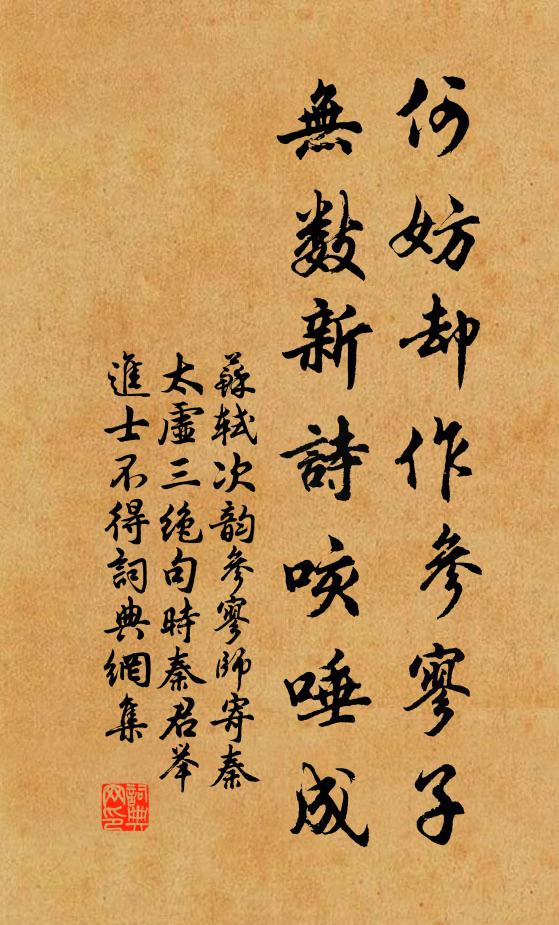 何妨却作參寥子
無數新詩咳唾成
蘇軾次韵參寥師寄秦
太虛三絶句時秦君举
進士不得詞典網集
詞典网印